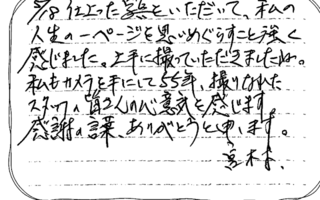 5/8 仕上った写真をいただいて、私の
人生の一ページを思いめぐらすこと強く
感じました。上手に撮っていただきましたね。
私もカメラを手にして55年、撮りなれた
スタッフの皆さんの心意気を感じます。
感謝の言葉、ありがとうと申します。